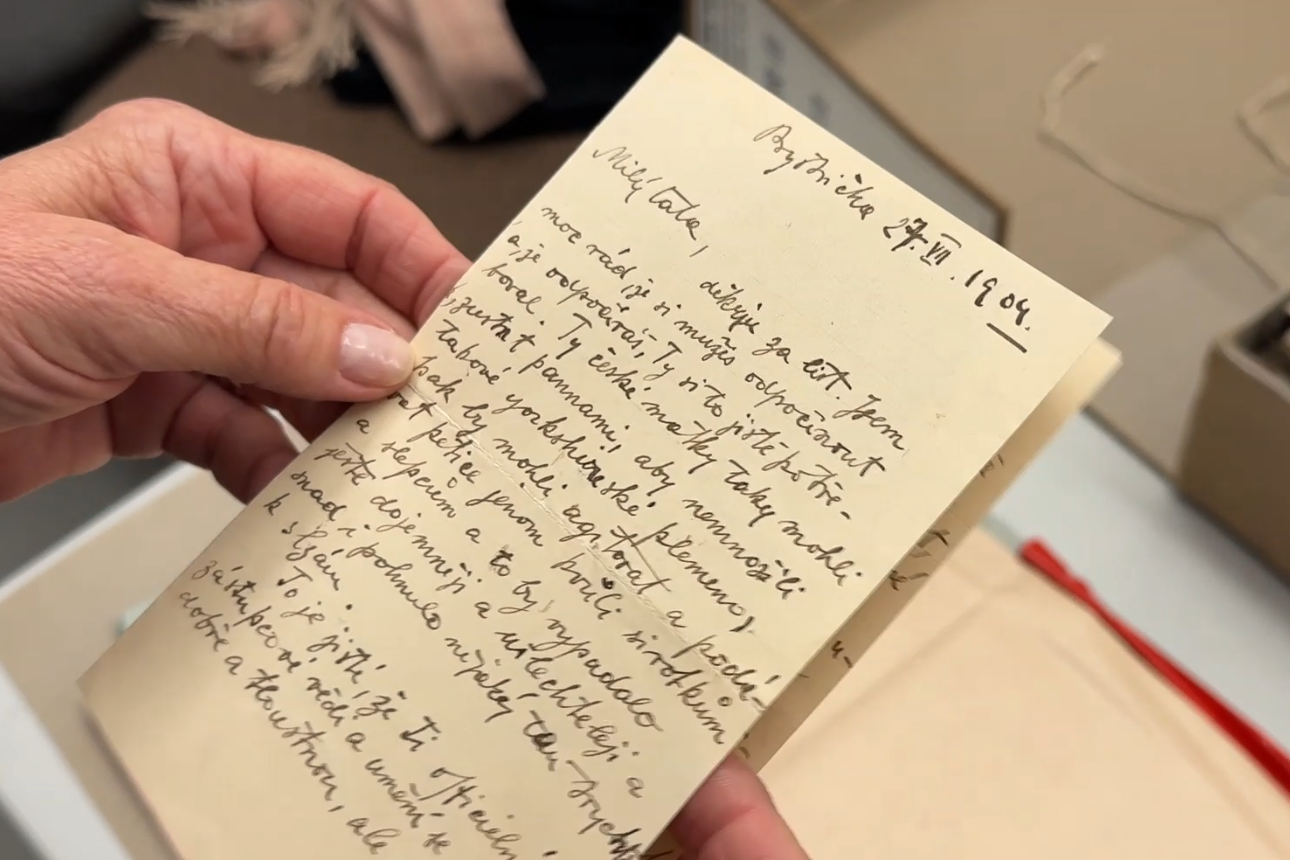 Bystřička 27.VII.1904.
Milý tato,
děkuju za list. Jsem
moc rád, že si můžeš odpočinout
a, že odpočíváš, Ty si to jistě potře-
boval. Ty české matky taky mohli
zůstat pannami, aby nemnožili
takové yorkshirské plemeno,
pak by mohli agitovat a podá-
vat petice jenom kvůli sirotkům
a slepcům a to by vypadalo
ještě dojemněji a ušlechtileji a
snad i pohnulo nějaký tan
k slzám.
To je jisté, že ti oficielní
zástupcové vědí a umění se
dobře a tloustnou, ale